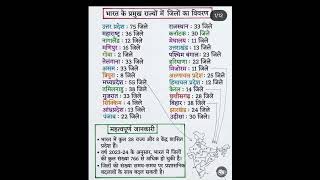 भारत के प्रमुख राज्यों में जिलों का विवरण
1/12
उत्तर प्रदेश : 75 जिले
महाराष्ट्र : 36 जिले
नागालैंड : 12 जिले
मणिपुर : 16 जिले
गोवा : 2 जिले
तेलंगाना : 33 जिले
असम : 33 जिले
त्रिपुरा : 8 जिले
मध्यप्रदेश : 55 जिले
तमिलनाडु : 38 जिले
गुजरात : 33 जिले
सिक्किम : 4 जिले
आंध्रप्रदेश : 13 जिले
पंजाब : 22 जिले
राजस्थान : 33 जिले
कर्नाटक : 30 जिले
मेघालय : 11 जिले
उत्तराखंड : 13 जिले
पश्चिम बंगाल : 23 जिले
हरियाणा : 22 जिले
मिजोरम : 11 जिले
अरुणाचल प्रदेश : 25 जिले
हिमाचल प्रदेश : 12 जिले
केरल : 14 जिले
छत्तीसगढ़ : 28 जिले
बिहार : 38 जिले
झारखंड : 24 जिले
उड़ीसा : 30 जिले
महत्वपूर्ण जानकारी
भारत में कुल 28 राज्य और 8 केंद्र शासित
प्रदेश है।
वर्ष 2023-24 के अनुसार, भारत में जिलों
की कुल संख्या 766 से अधिक हो चुकी है।
जिलों की संख्या समय-समय पर प्रशासनिक
बदलावों के साथ बदल सकती है।